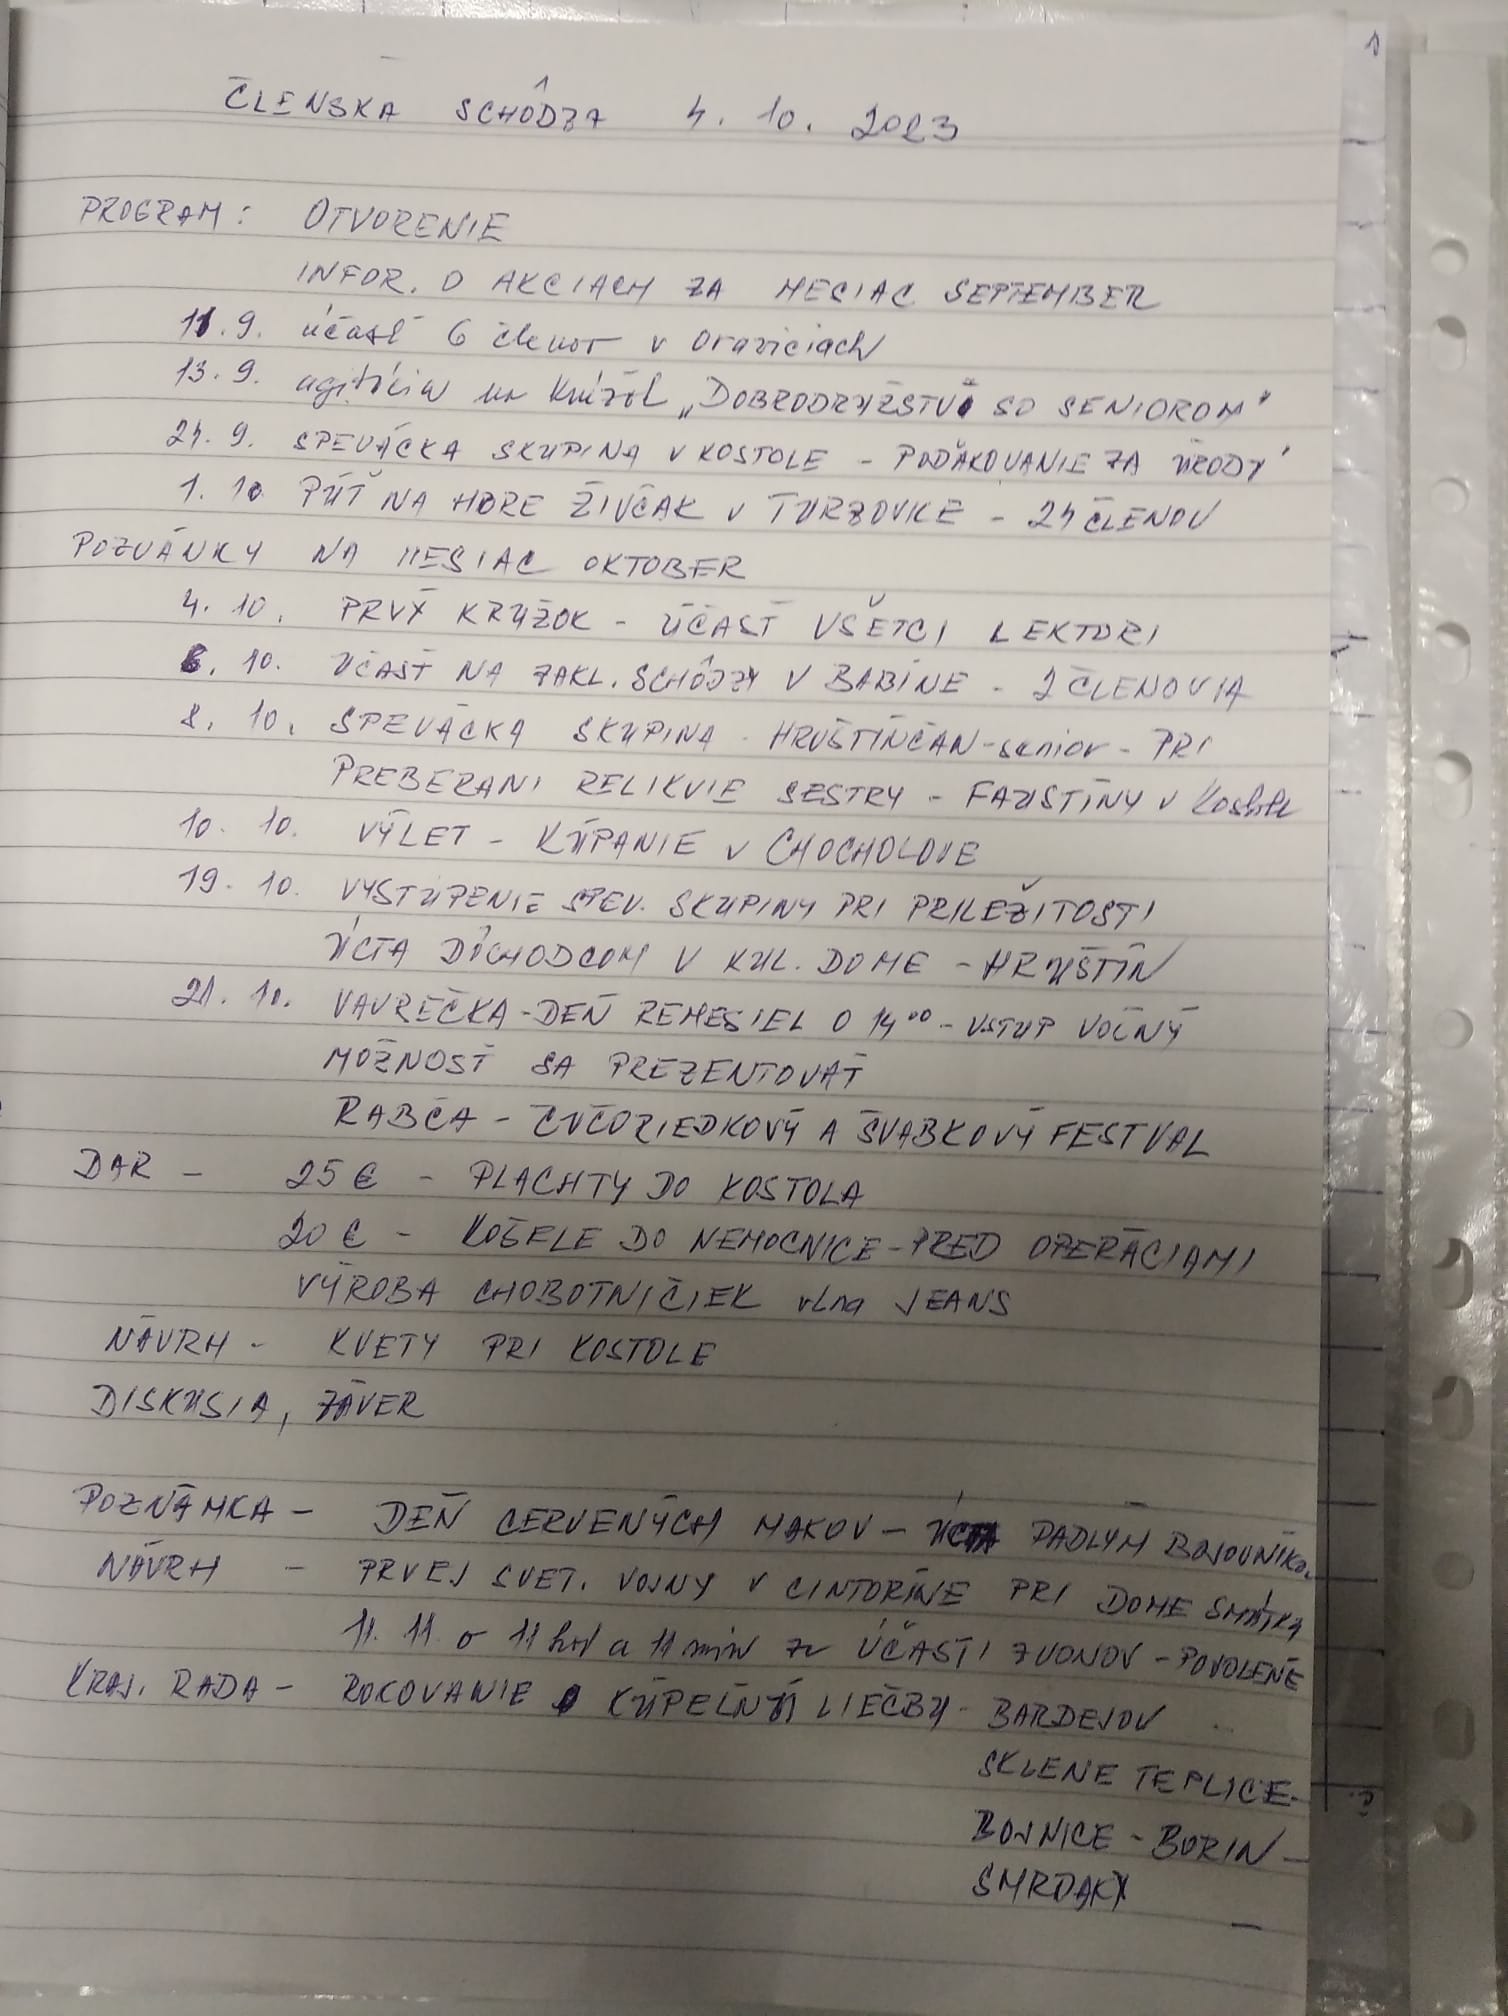 ČLENSKÁ SCHÔDZA 4. 10. 2023
PROGRAM: OTVORENIE
INFOR. O AKCIACH ZA MESIAC SEPTEMBER
11. 9. účasť 6 členov v Oraviciach
13. 9. agitácia na krúžok „DOBRODRUŽSTVÁ SO SENIOROM"
24. 9. SPEVÁCKA SKUPINA V KOSTOLE - POĎAKOVANIE ZA ÚRODY
1. 10 PÚŤ NA HORE ŽIVČAK V TURZOVKE - 24 ČLENOV
POZVÁNKY NA MESIAC OKTOBER
4. 10. PRVÝ KRÚŽOK - ÚČASŤ VŠETCI LEKTORI
6. 10. ÚČASŤ NA ZAKL. SCHÔDZY V BABÍNE - 2 ČLENOVIA
8. 10. SPEVÁCKA SKUPINA - HRUŠTÍNČAN-senior - PRI
PREBERANI RELIKVIE SESTRY - FAUSTÍNY v kostole
10. 10. VÝLET - KÚPANIE V CHOCHOLOVE
19. 10. VYSTÚPENIE SPEV. SKUPINY PRI PRILEŽITOSTI
ÚCTA DÔCHODCOM V KUL. DOME - HRUŠTÍN
21. 10. VAVREČKA - DEŇ REMESIEL O 14⁰⁰ - VSTUP VOĽNÝ
MOŽNOSŤ SA PREZENTOVAŤ
RABČA - ČUČORIEDKOVÝ A ŠVABKOVÝ FESTVAL
DAR - 25 € - PLACHTY DO KOSTOLA
20 € - KOŠELE DO NEMOCNICE - PRED OPERÁCIAMI
VÝROBA CHOBOTNIČIEK vlna JEANS
NÁVRH - KVETY PRI KOSTOLE
DISKUSIA, ZÁVER
POZNÁMKA - DEŇ CERVENÝCH MAKOV - ÚCTA PADLÝM BOJOVNÍKO
NÁVRH - PRVEJ SVET. VOJNY V CINTORÍNE PRI DOME SMÚTKA
11. 11 o 11 hod a 11 min za ÚČASTI ZVONOV - POVOLENÉ
KRAJ. RADA - ROKOVANIE O KÚPEĽNÚ LIEČBU - BARDEJOV
SKLENE TEPLICE -
BOJNICE - BORIN -
SMRDAKY